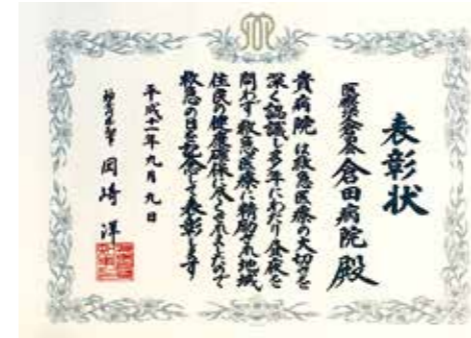 表彰状
医療法人倉田会 倉田病院 殿
貴病院は救急医療の大切さを
深く認識し多年にわたり昼夜を
問わず救急医療に精励され地域
住民の健康確保に尽くされましたので
救急の日を記念して表彰します
平成十一年九月九日
神奈川県知事 岡崎 洋